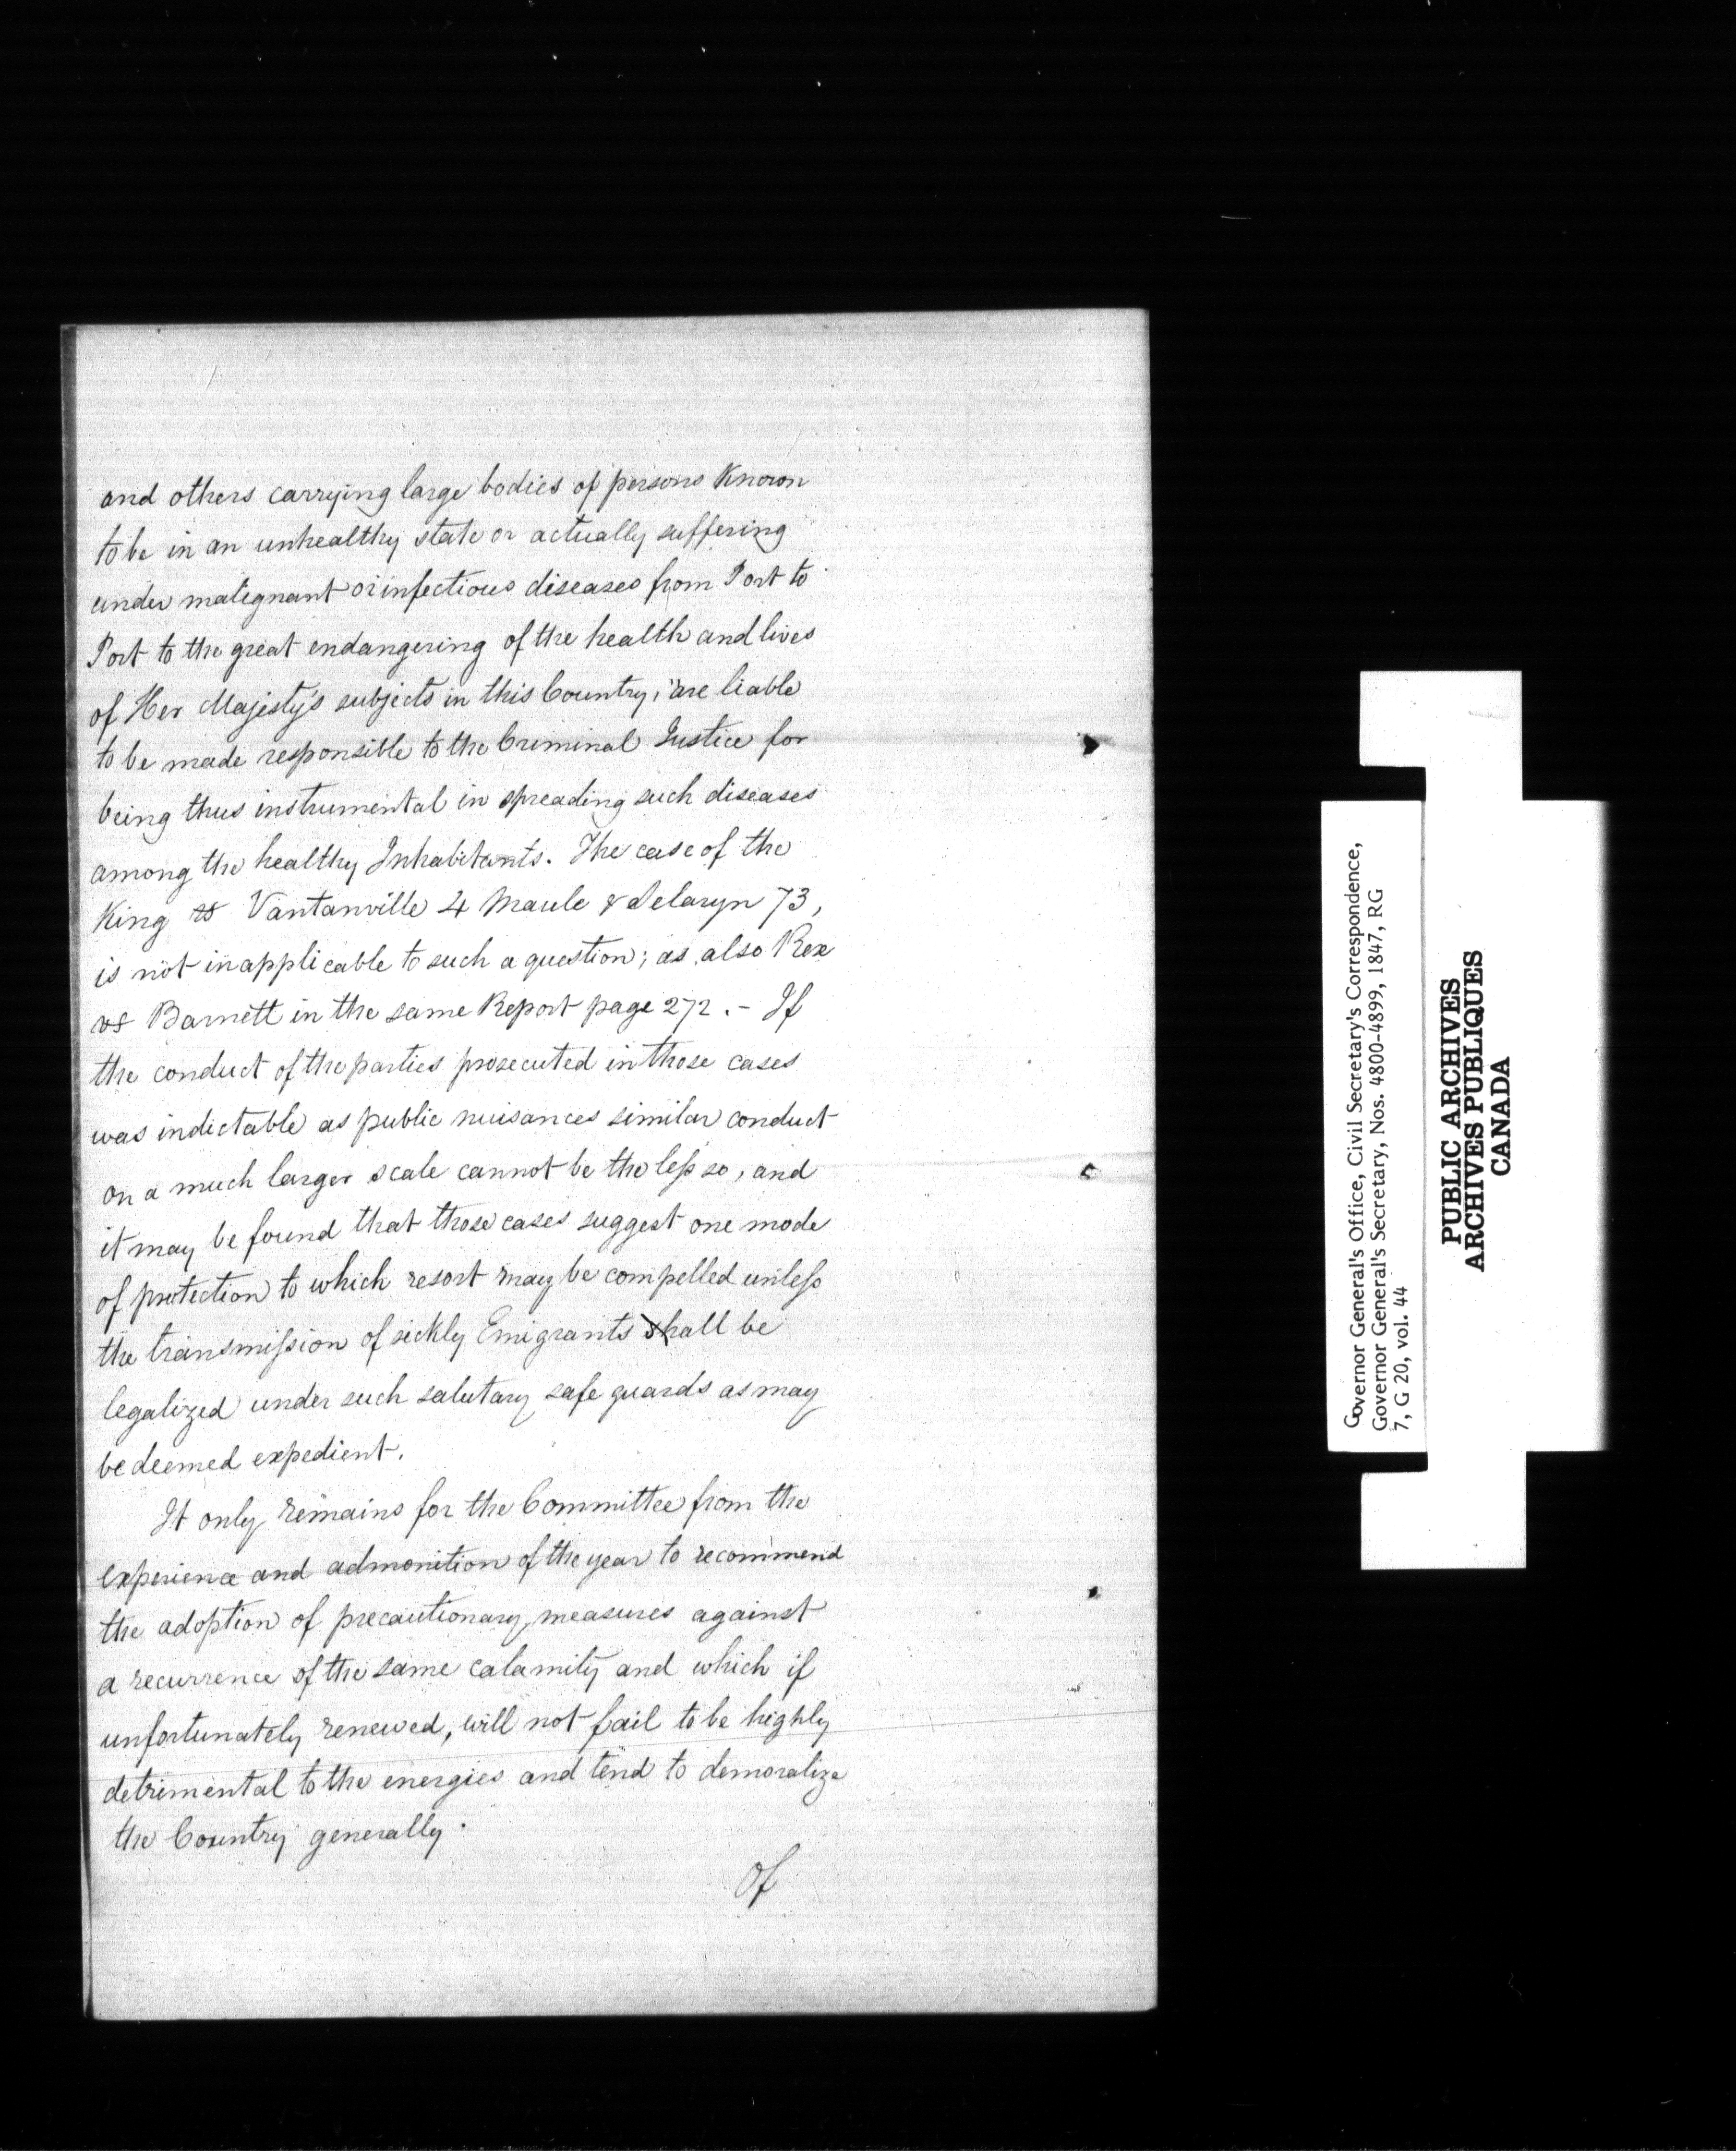 and others carrying large bodies of persons Known
to be in an unhealthy state or actually suffering
under malignant or infectious diseases from Port to
Port to the great endangering of the health and lives
of Her Majesty's subjects in this Country, are liable
to be made responsible to the Criminal Justice for
being thus instrumental in spreading such diseases
among the healthy Inhabitants. The case of the
King vs Vantanville 4 Maule & Selaryn 73,
is not inapplicable to such a question; as also Rex
vs Barnett in the same Report page 272. - If
the conduct of the parties prosecuted in those cases
was indictable as public nuisances similar conduct
on a much larger scale cannot be the less so, and
it may be found that those cases suggest one mode
of protection to which resort may be compelled unless
the transmission of sickly Emigrants shall be
legalized under such salutary safe guards as may
be deemed expedient.
It only remains for the Committee from the
experience and admonition of the year to recommend
the adoption of precautionary measures against
a recurrence of the same calamity and which if
unfortunately renewed, will not fail to be highly
detrimental to the energies and tend to demoralize
the Country generally.
Of
Governor General's Office, Civil Secretary's Correspondence,
Governor General's Secretary, Nos. 4800-4899, 1847, RG
7, G 20, vol. 44
PUBLIC ARCHIVES
ARCHIVES PUBLIQUES
CANADA